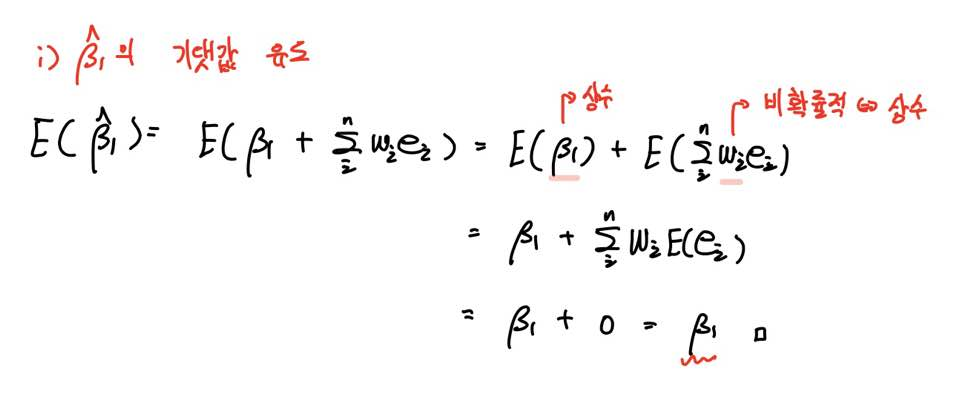 i) β̂₁의 기댓값 유도
↱상수 ↱비확률적 ⇔ 상수
E(β̂₁) = E(β₁ + Σᵢⁿ wᵢeᵢ) = E(β₁) + E(Σᵢⁿ wᵢeᵢ)
= β₁ + Σᵢⁿ wᵢE(eᵢ)
= β₁ + 0 = β₁ □